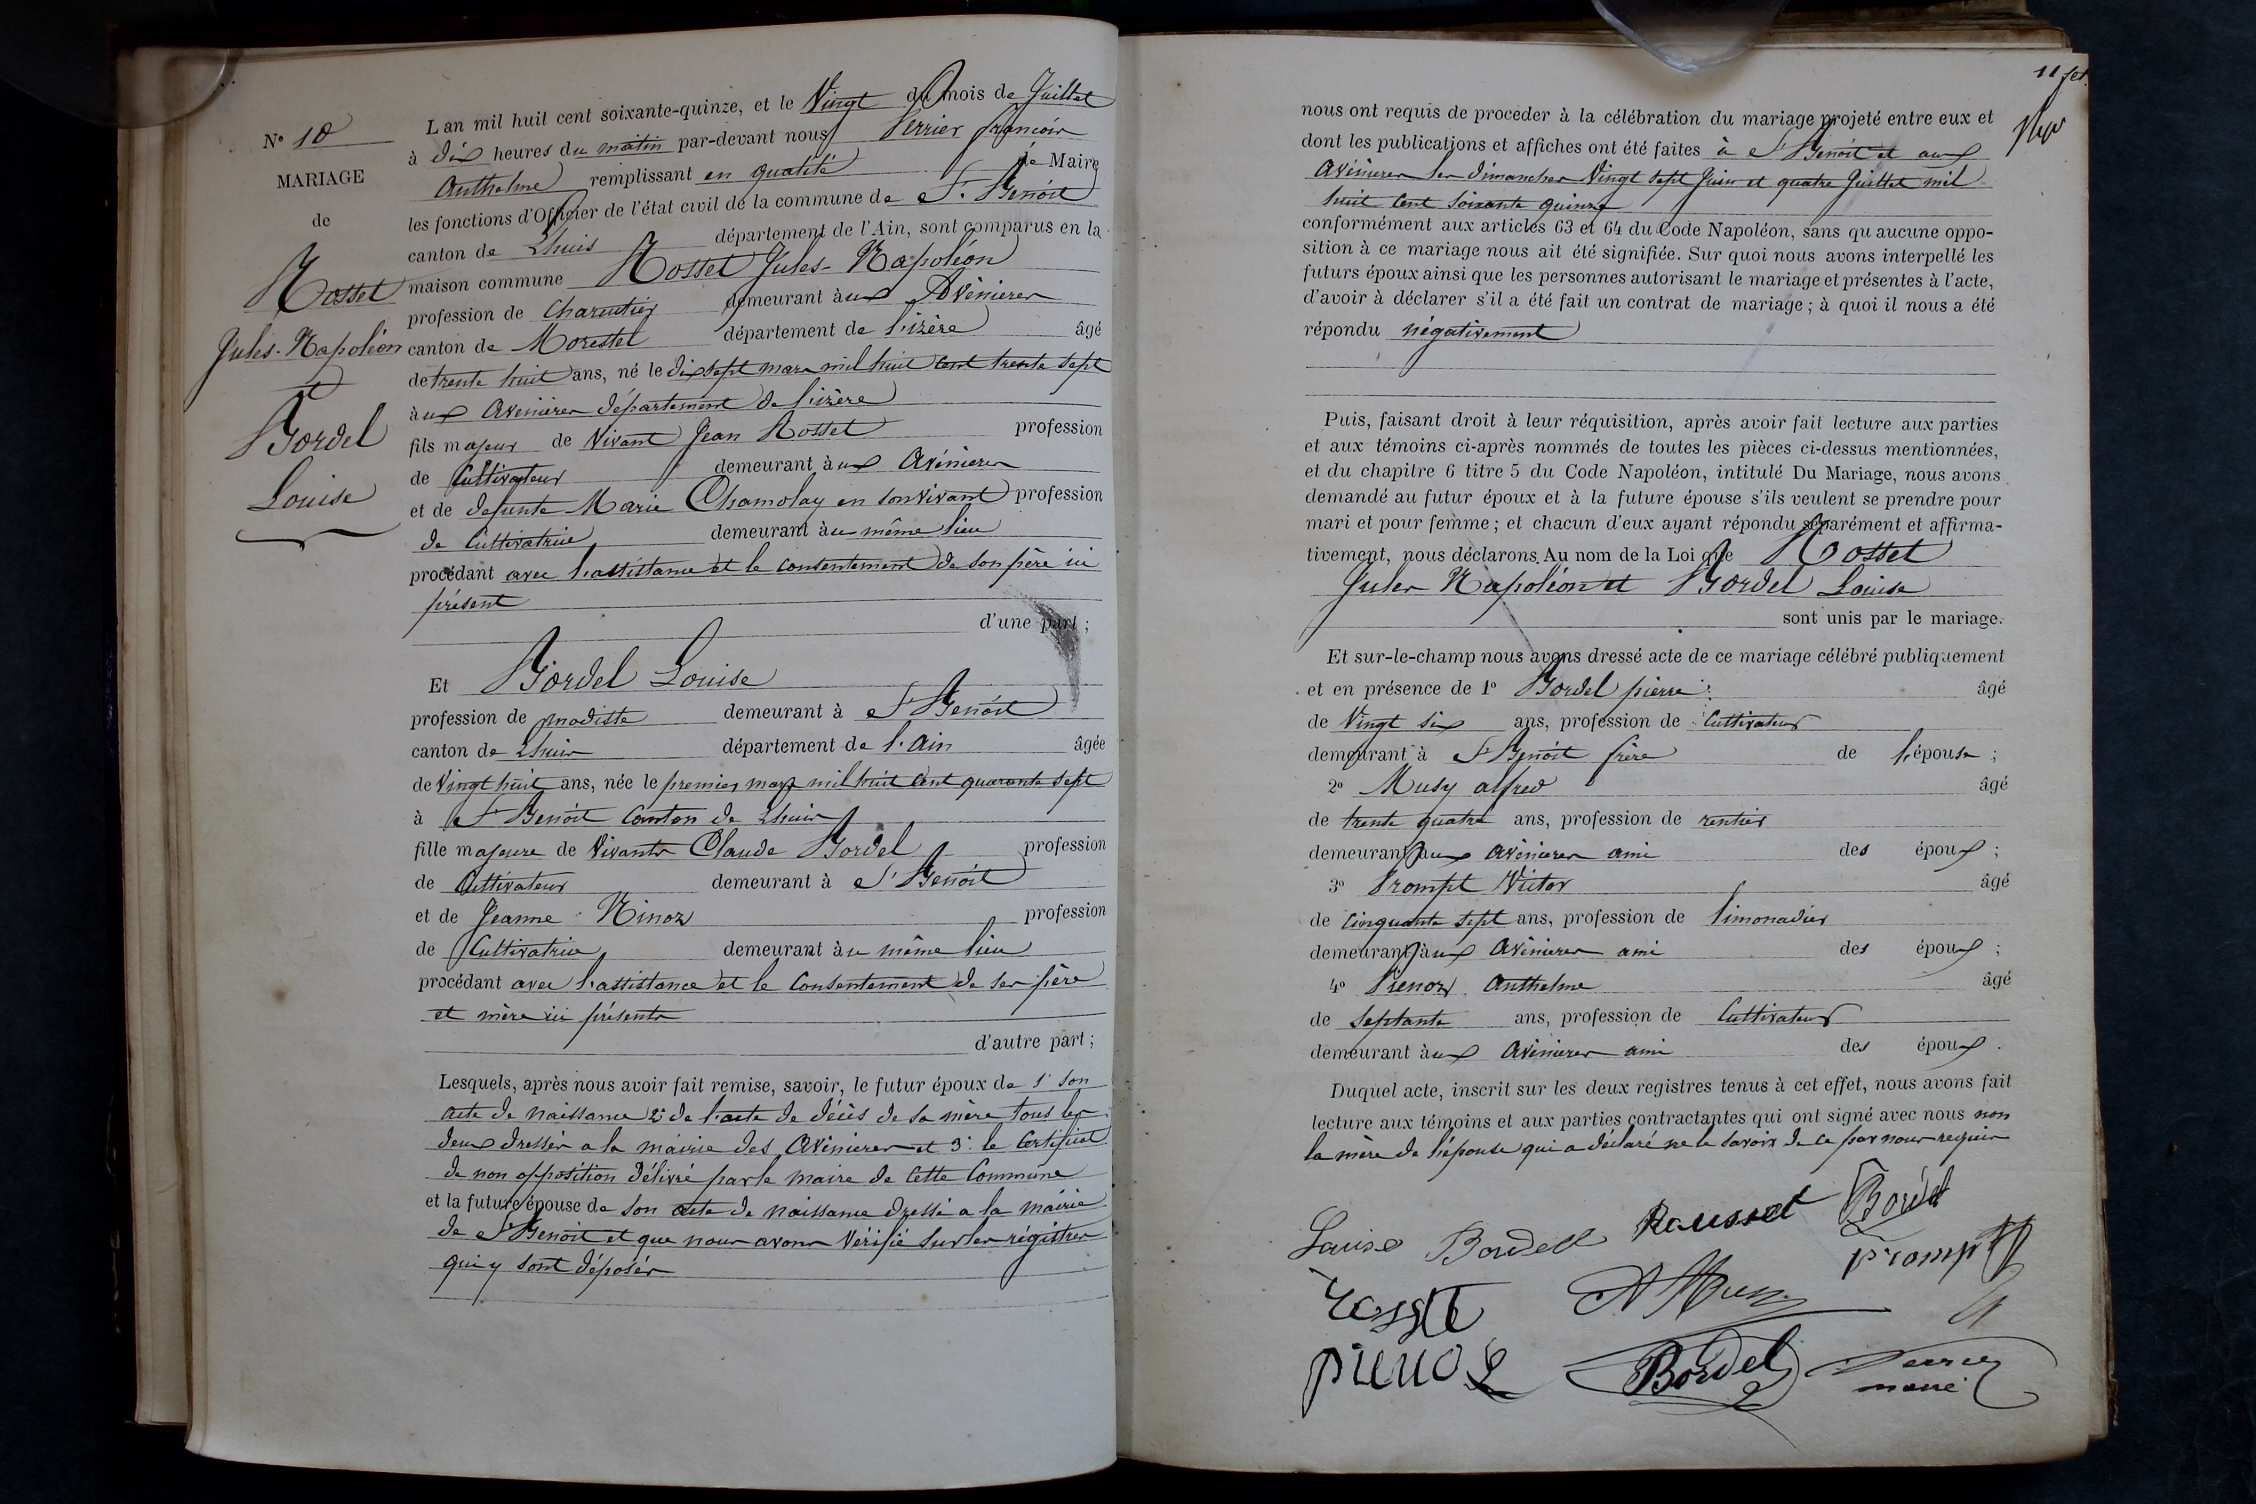 N° 10
MARIAGE
de
Rosset
Jules-Napoléon
et
Bordel
Louise
L'an mil huit cent soixante-quinze, et le Vingt du mois de Juillet
à dix heures du matin par-devant nous Perrier françois
Anthelme remplissant en qualité de Maire
les fonctions d'Officier de l'état civil de la commune de St. Benoit
canton de Lhuis département de l'Ain, sont comparus en la
maison commune Rosset Jules-Napoléon
profession de Charcutier demeurant aux Avenieres
canton de Morestel département de l'izère âgé
de trente huit ans, né le dix sept mars mil huit cent trente sept
aux Avenieres département de l'izère
fils majeur de Vivant Jean Rosset profession
de Cultivateur demeurant aux Avenieres
et de defunte Marie Chamolay en son vivant profession
de Cultivatrice demeurant au même lieu
procédant avec l'assistance et le consentement de son père ici
présent
d'une part ;
Et Bordel Louise
profession de modiste demeurant à St Benoit
canton de Lhuis département de l'Ain âgée
de Vingt huit ans, née le premier mars mil huit cent quarante sept
à St Benoit Canton de Lhuis
fille majeure de Vivants Claude Bordel profession
de Cultivateur demeurant à St Benoit
et de Jeanne Ninoz profession
de Cultivatrice demeurant au même lieu
procédant avec l'assistance et le Consentement de ses père
et mère ici présents
d'autre part ;
Lesquels, après nous avoir fait remise, savoir, le futur époux de 1° son
acte de naissance 2° de l'acte de décès de sa mère tous les
deux dressés a la mairie des Avenieres et 3° le Certificat
de non opposition délivré par le maire de Cette Commune
et la future épouse de son acte de naissance dressé a la mairie
de St Benoit et que nous avons Vérifié sur les régistres
qui y sont déposés
11 fet
nous ont requis de procéder à la célébration du mariage projeté entre eux et
dont les publications et affiches ont été faites à St Benoit et aux
Avenieres les dimanches Vingt sept Juin et quatre Juillet mil
huit Cent Soixante quinze
conformément aux articles 63 et 64 du Code Napoléon, sans qu'aucune oppo-
sition à ce mariage nous ait été signifiée. Sur quoi nous avons interpellé les
futurs époux ainsi que les personnes autorisant le mariage et présentes à l'acte,
d'avoir à déclarer s'il a été fait un contrat de mariage ; à quoi il nous a été
répondu négativement
Puis, faisant droit à leur réquisition, après avoir fait lecture aux parties
et aux témoins ci-après nommés de toutes les pièces ci-dessus mentionnées,
et du chapitre 6 titre 5 du Code Napoléon, intitulé Du Mariage, nous avons
demandé au futur époux et à la future épouse s'ils veulent se prendre pour
mari et pour femme ; et chacun d'eux ayant répondu séparément et affirma-
tivement, nous déclarons Au nom de la Loi que Rosset
Jules Napoléon et Bordel Louise
sont unis par le mariage.
Et sur-le-champ nous avons dressé acte de ce mariage célébré publiquement
et en présence de 1° Bordel pierre âgé
de Vingt six ans, profession de Cultivateur
demeurant à St Benoit frère de l'épouse ;
2° Musy alfred âgé
de trente quatre ans, profession de rentier
demeurant aux Avenieres ami des époux ;
3° Prompt Victor âgé
de Cinquante sept ans, profession de limonadier
demeurant aux Avenieres ami des époux ;
4° Prenoz Anthelme âgé
de Septante ans, profession de Cultivateur
demeurant aux Avenieres ami des époux .
Duquel acte, inscrit sur les deux registres tenus à cet effet, nous avons fait
lecture aux témoins et aux parties contractantes qui ont signé avec nous non
la mère de l'épouse qui a déclaré ne le savoir de ce par nous requise
Louise Bordell Rousset Bordel
Prompt
rosset A Musy
Bordel Perrier
maire